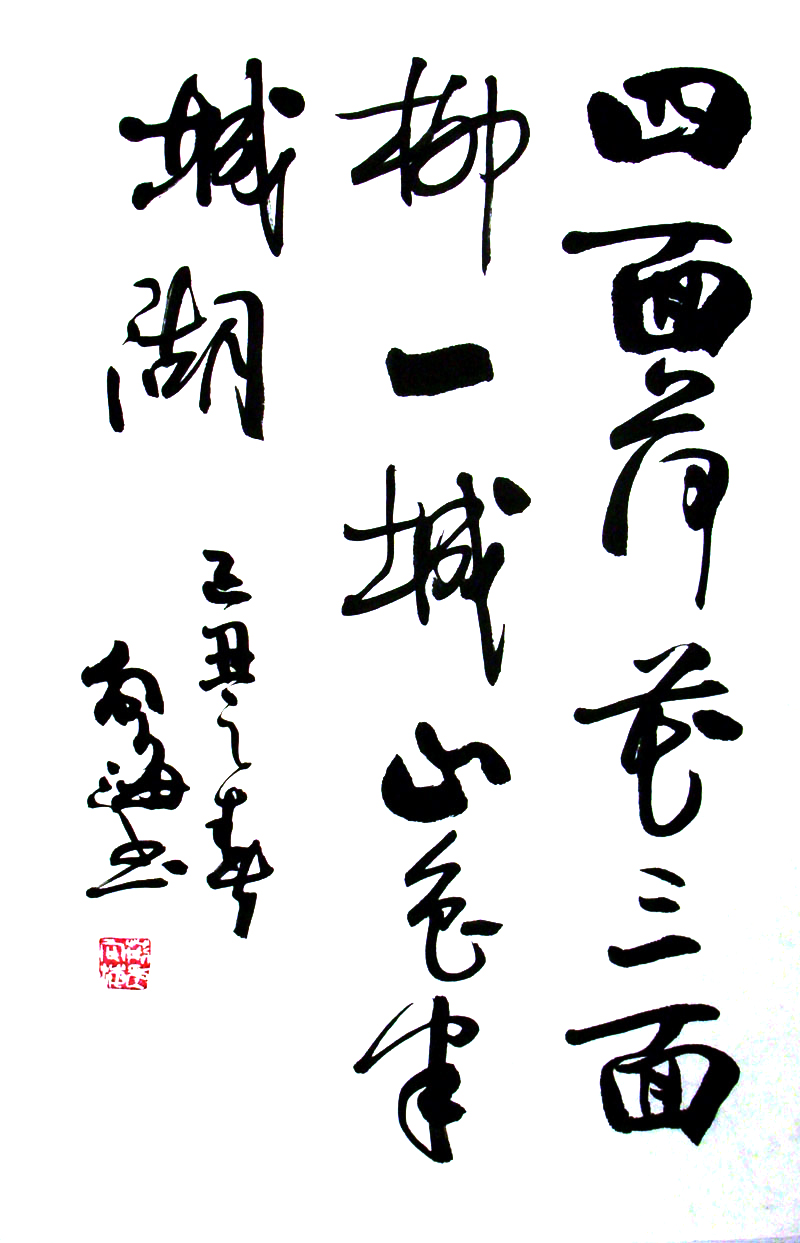 四面荷花三面
柳一城山色半
城湖
己丑之春
海书